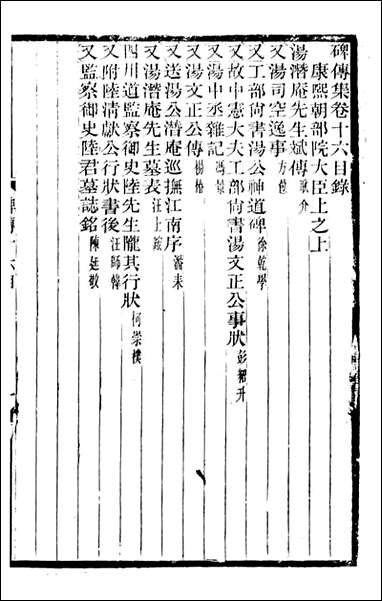 碑傳集卷十六目錄
康熙朝部院大臣上之上
湯潛庵先生斌傳 耿介
又湯司空逸事 方苞
又工部尙書湯公神道碑 徐乾學
又故中憲大夫工部尙書湯文正公事狀 彭紹升
又湯中丞雜記 馮景
又湯文正公傳 楊椿
又送湯公潛庵巡撫江南序 潘耒
又湯潛庵先生墓表 汪士鋐
四川道監察御史陸先生隴其行狀 柯崇樸
又附陸清獻公行狀書後 汪師韓
又監察御史陸君墓誌銘 陳廷敬